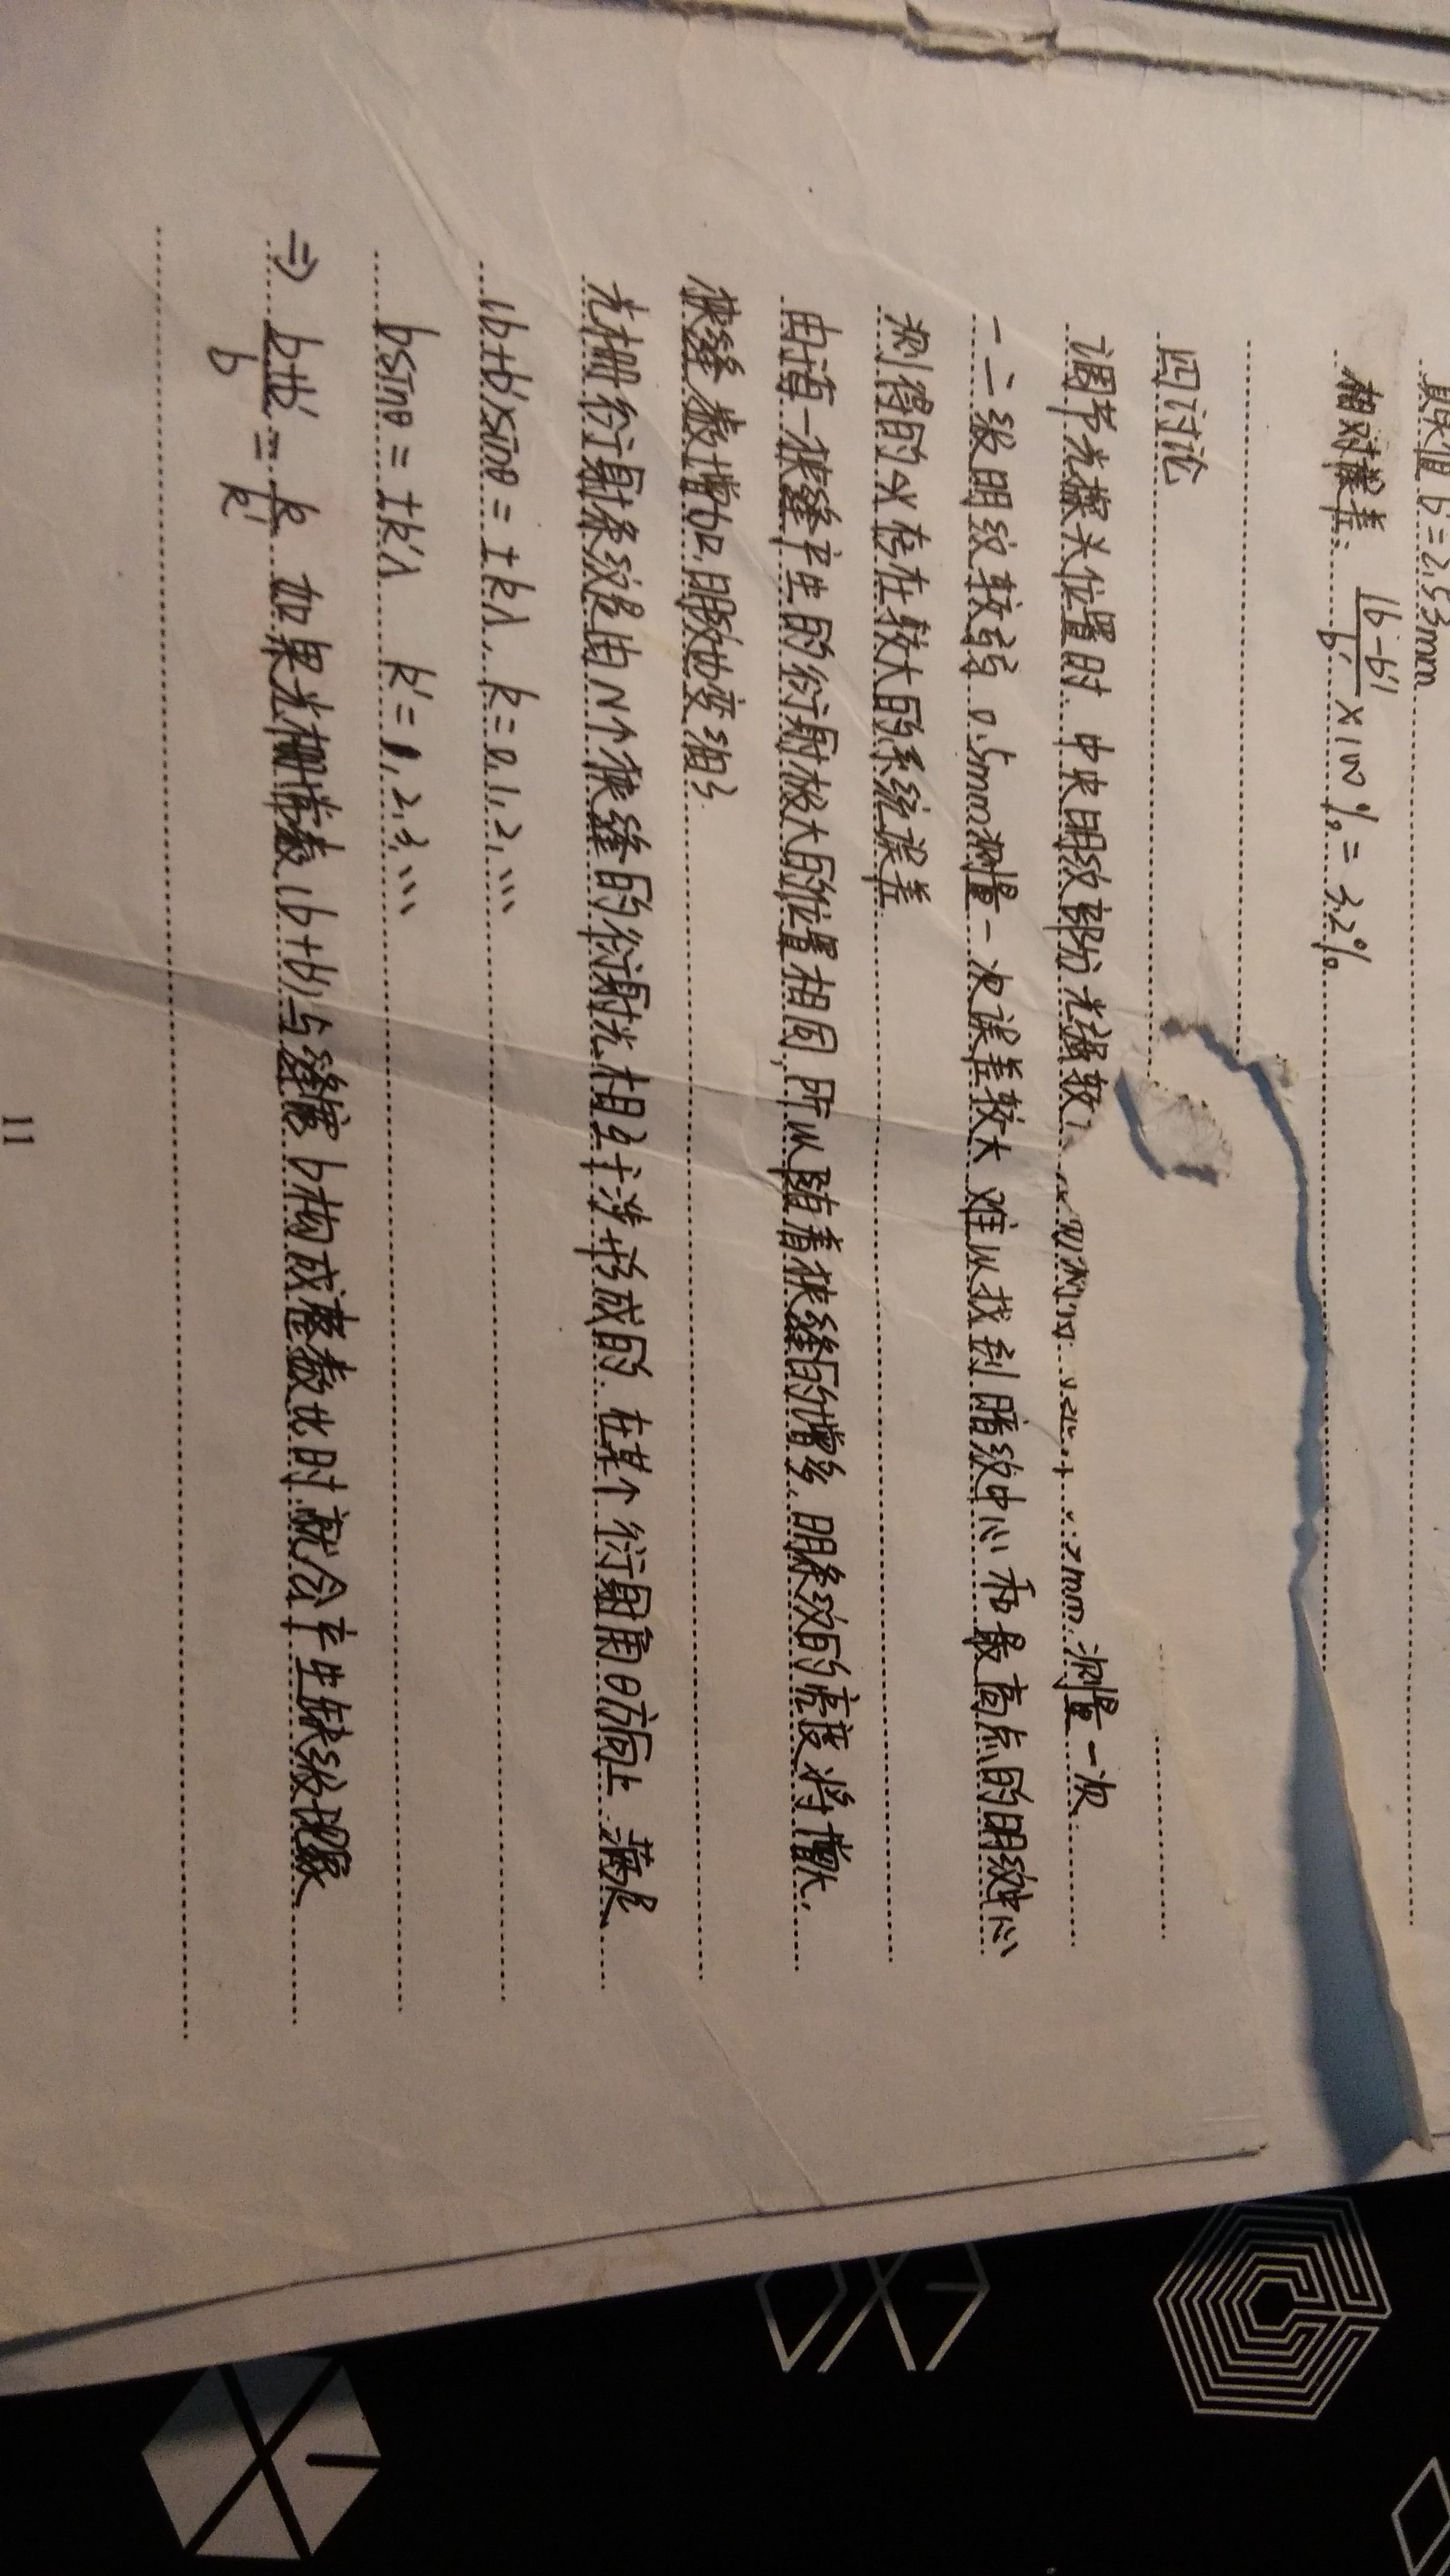 真实值 b'=2.53mm
相对误差: |b-b'|/b' ×100%=3.2%
四讨论
调节光探头位置时.中央明纹部份光强较 mm.测量一次
一二级明纹较弱 0.5mm测量一次误差较大 难以找到暗纹中心和最高点的明纹中心
测得的 存在较大的系统误差
由于每一狭缝产生的衍射极大的位置相同,所以随着狭缝的增多.明条纹的亮度将增大.
狭缝数增加,明纹也变细了.
光栅衍射条纹是由N个狭缝的衍射光相互干涉形成的.在某个衍射角θ方向上 满足
(b+b')×sinθ=±kλ. k=0,1,2,...
bsinθ=±k'λ k'=1,2,3,...
⇒ (b+b')/b = k/k' 如果光栅常数(b+b')与缝宽b构成整数比时.就会产生缺级现象
11